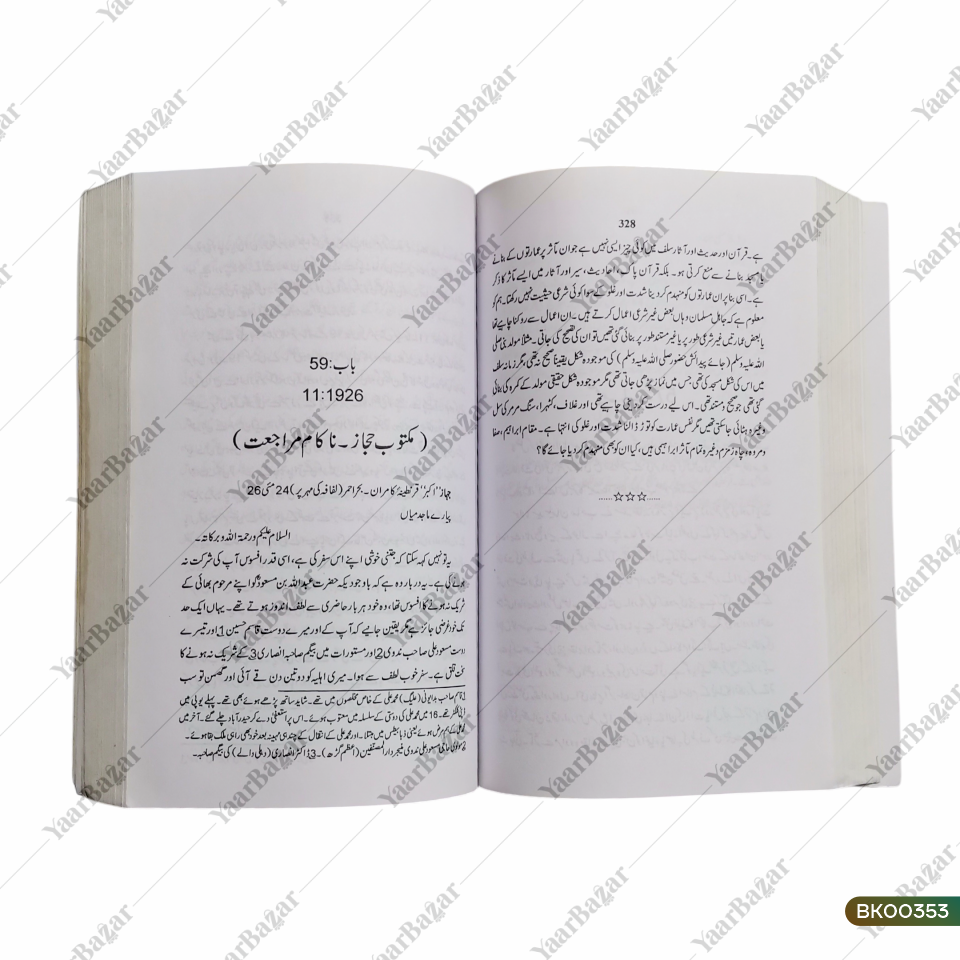 328
ہے۔ قرآن اور حدیث اور آثار سلف میں کوئی چیز ایسی نہیں ہے جو ان مآثر پر عمارتوں کے بنانے
یا مسجد بنانے سے منع کرتی ہو۔ بلکہ قرآن پاک، احادیث، سیر اور آثار میں ایسے مآثر کا ذکر
ہے۔ اسی بنا پر ان عمارتوں کو منہدم کر دینا شدت اور غلو کے سوا کوئی شرعی حیثیت نہیں رکھتا۔ ہم کو
معلوم ہے کہ جاہل مسلمان وہاں بعض غیر شرعی اعمال کرتے ہیں۔ ان اعمال سے روکنا چاہیے تھا
یا بعض عمارتیں غیر شرعی طور پر یا غیر مستند طور پر بنائی گئی تھیں تو ان کی تصحیح کی جاتی۔ مثلاً مولد نبی صلی
اللہ علیہ وسلم (جائے پیدائش حضور صلی اللہ علیہ وسلم) کی موجودہ شکل یقیناً صحیح نہ تھی، مگر زمانہ سلف
میں اس کی شکل مسجد کی تھی جس میں نماز پڑھی جاتی تھی مگر موجودہ شکل حقیقی مولد کے کمرہ کی بنائی
گئی تھی جو صحیح و مستند تھی۔ اس لیے درست کر دینی چاہیے تھی اور غلاف، کٹہرا، سنگ مرمر کی سل
وغیرہ ہٹائی جا سکتی تھیں مگر نفس عمارت کو توڑ ڈالنا شدت اور غلو کی انتہا ہے۔ مقام ابراہیم، صفا
و مروہ، چاہ زمزم وغیرہ تمام مآثر ابراہیمی ہیں، کیا ان کو بھی منہدم کر دیا جائے گا؟
......☆☆☆......
باب:59
11:1926
(مکتوب حجاز۔ ناکام مراجعت)
جہاز ”اکبر“ قرنطینۂ کامران۔ بحر احمر (لفافہ کی مہر پر) 24 مئی 26
پیارے ماجد میاں
السلام علیکم ورحمۃ اللہ وبرکاتہ۔
یہ تو نہیں کہہ سکتا کہ جتنی خوشی اپنے اس سفر کی ہے، اسی قدر افسوس آپ کی شرکت نہ
ہونے کی ہے۔ یہ دربار وہ ہے کہ باوجودیکہ حضرت عبداللہ بن مسعودؓ کو اپنے مرحوم بھائی کے
شریک نہ ہونے کا افسوس تھا، وہ خود ہر بار حاضری سے لطف اندوز ہوتے تھے۔ یہاں ایک حد
تک خود غرضی جائز ہے مگر یقین جانیے کہ آپ کے اور میرے دوست قاسم حسین 1 اور تیسرے
دوست مسعود علی صاحب ندوی 2 اور مستورات میں بیگم صاحبہ انصاری 3 کے شریک نہ ہونے کا
سخت قلق ہے۔ سفر خوب لطف سے ہوا۔ میری اہلیہ کو دو تین دن قے آئی اور گھمن تو سب
1 قاسم صاحب بدایونی (علیگ) محمد علی کے خاص مخلصوں میں تھے۔ شاید ساتھ پڑھے ہوئے بھی تھے۔ پہلے یوپی میں
ڈپٹی کلکٹر تھے۔ 16 میں محمد علی کی دوستی کے سلسلہ میں معتوب ہوئے۔ اس پر استعفیٰ دے کر حیدرآباد چلے گئے۔ آخر میں
محمد علی کے ہم مرض ہوئے یعنی ذیابیطس میں مبتلا۔ اور محمد علی کے انتقال کے چند ہی مہینہ بعد خود بھی راہی ملک بقا ہوئے۔
2 مولوی حاجی مسعود علی ندوی منیجر دار المصنفین (اعظم گڑھ)۔ 3 ڈاکٹر انصاری (دہلی والے) کی بیگم صاحبہ۔
YaarBazar
BK00353